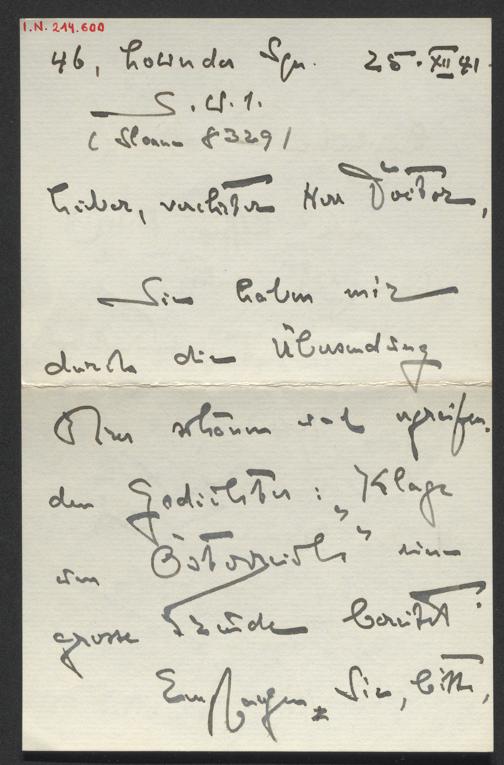 I.N. 214.600
46, Lowndes Sqr. 25. XII 41.
S.W.1.
(Sloane 8329)
Lieber, verehrter Herr Doctor,
Sie haben mir
durch die Übersendung
Ihres schönen und ergreifen-
den Gedichtes: „Klage
um Österreich" eine
grosse Freude bereitet!
Empfangen Sie, bitte,